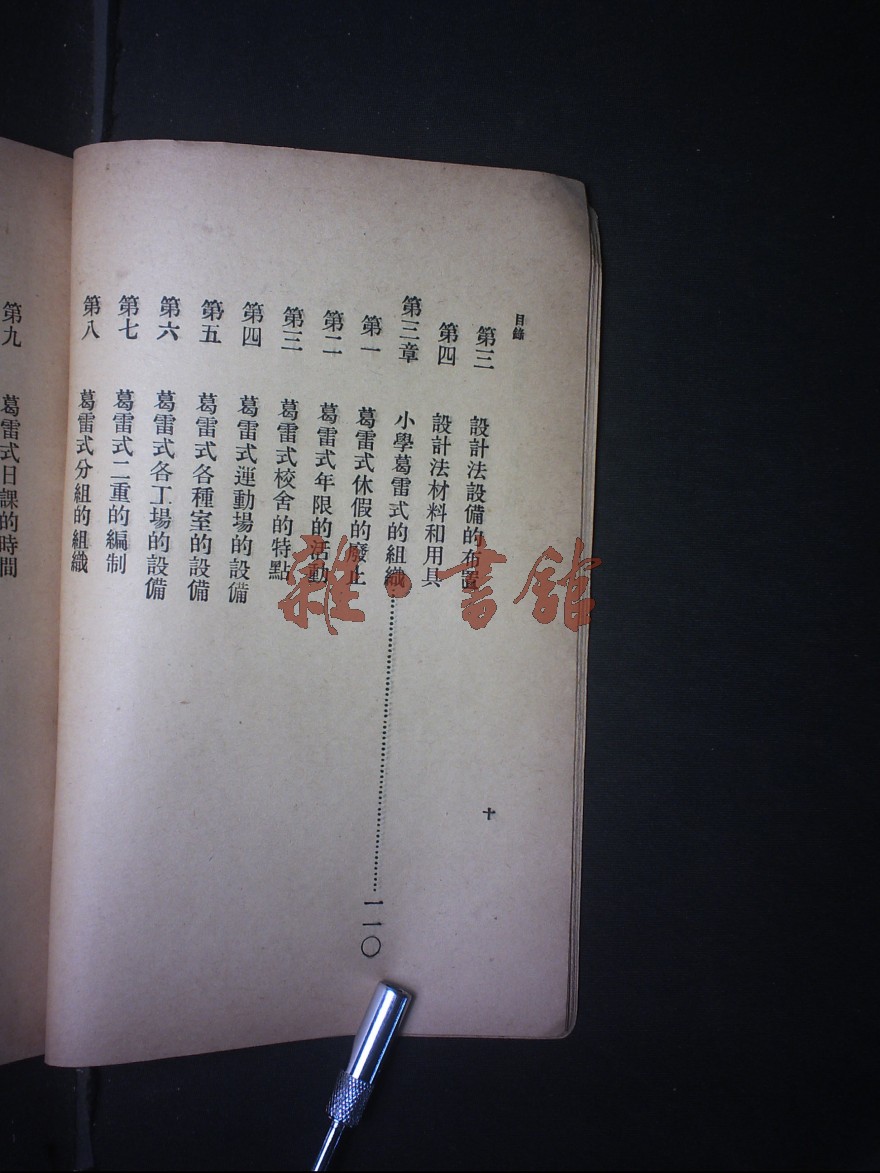 目錄
第三 設計法設備的布置
第四 設計法材料和用具
第三章 小學葛雷式的組織……一一〇
第一 葛雷式休假的廢止
第二 葛雷式年限的活動
第三 葛雷式校舍的特點
第四 葛雷式運動場的設備
第五 葛雷式各種室的設備
第六 葛雷式各工場的設備
第七 葛雷式二重的編制
第八 葛雷式分組的組織
十
第九 葛雷式日課的時間
雜·書館